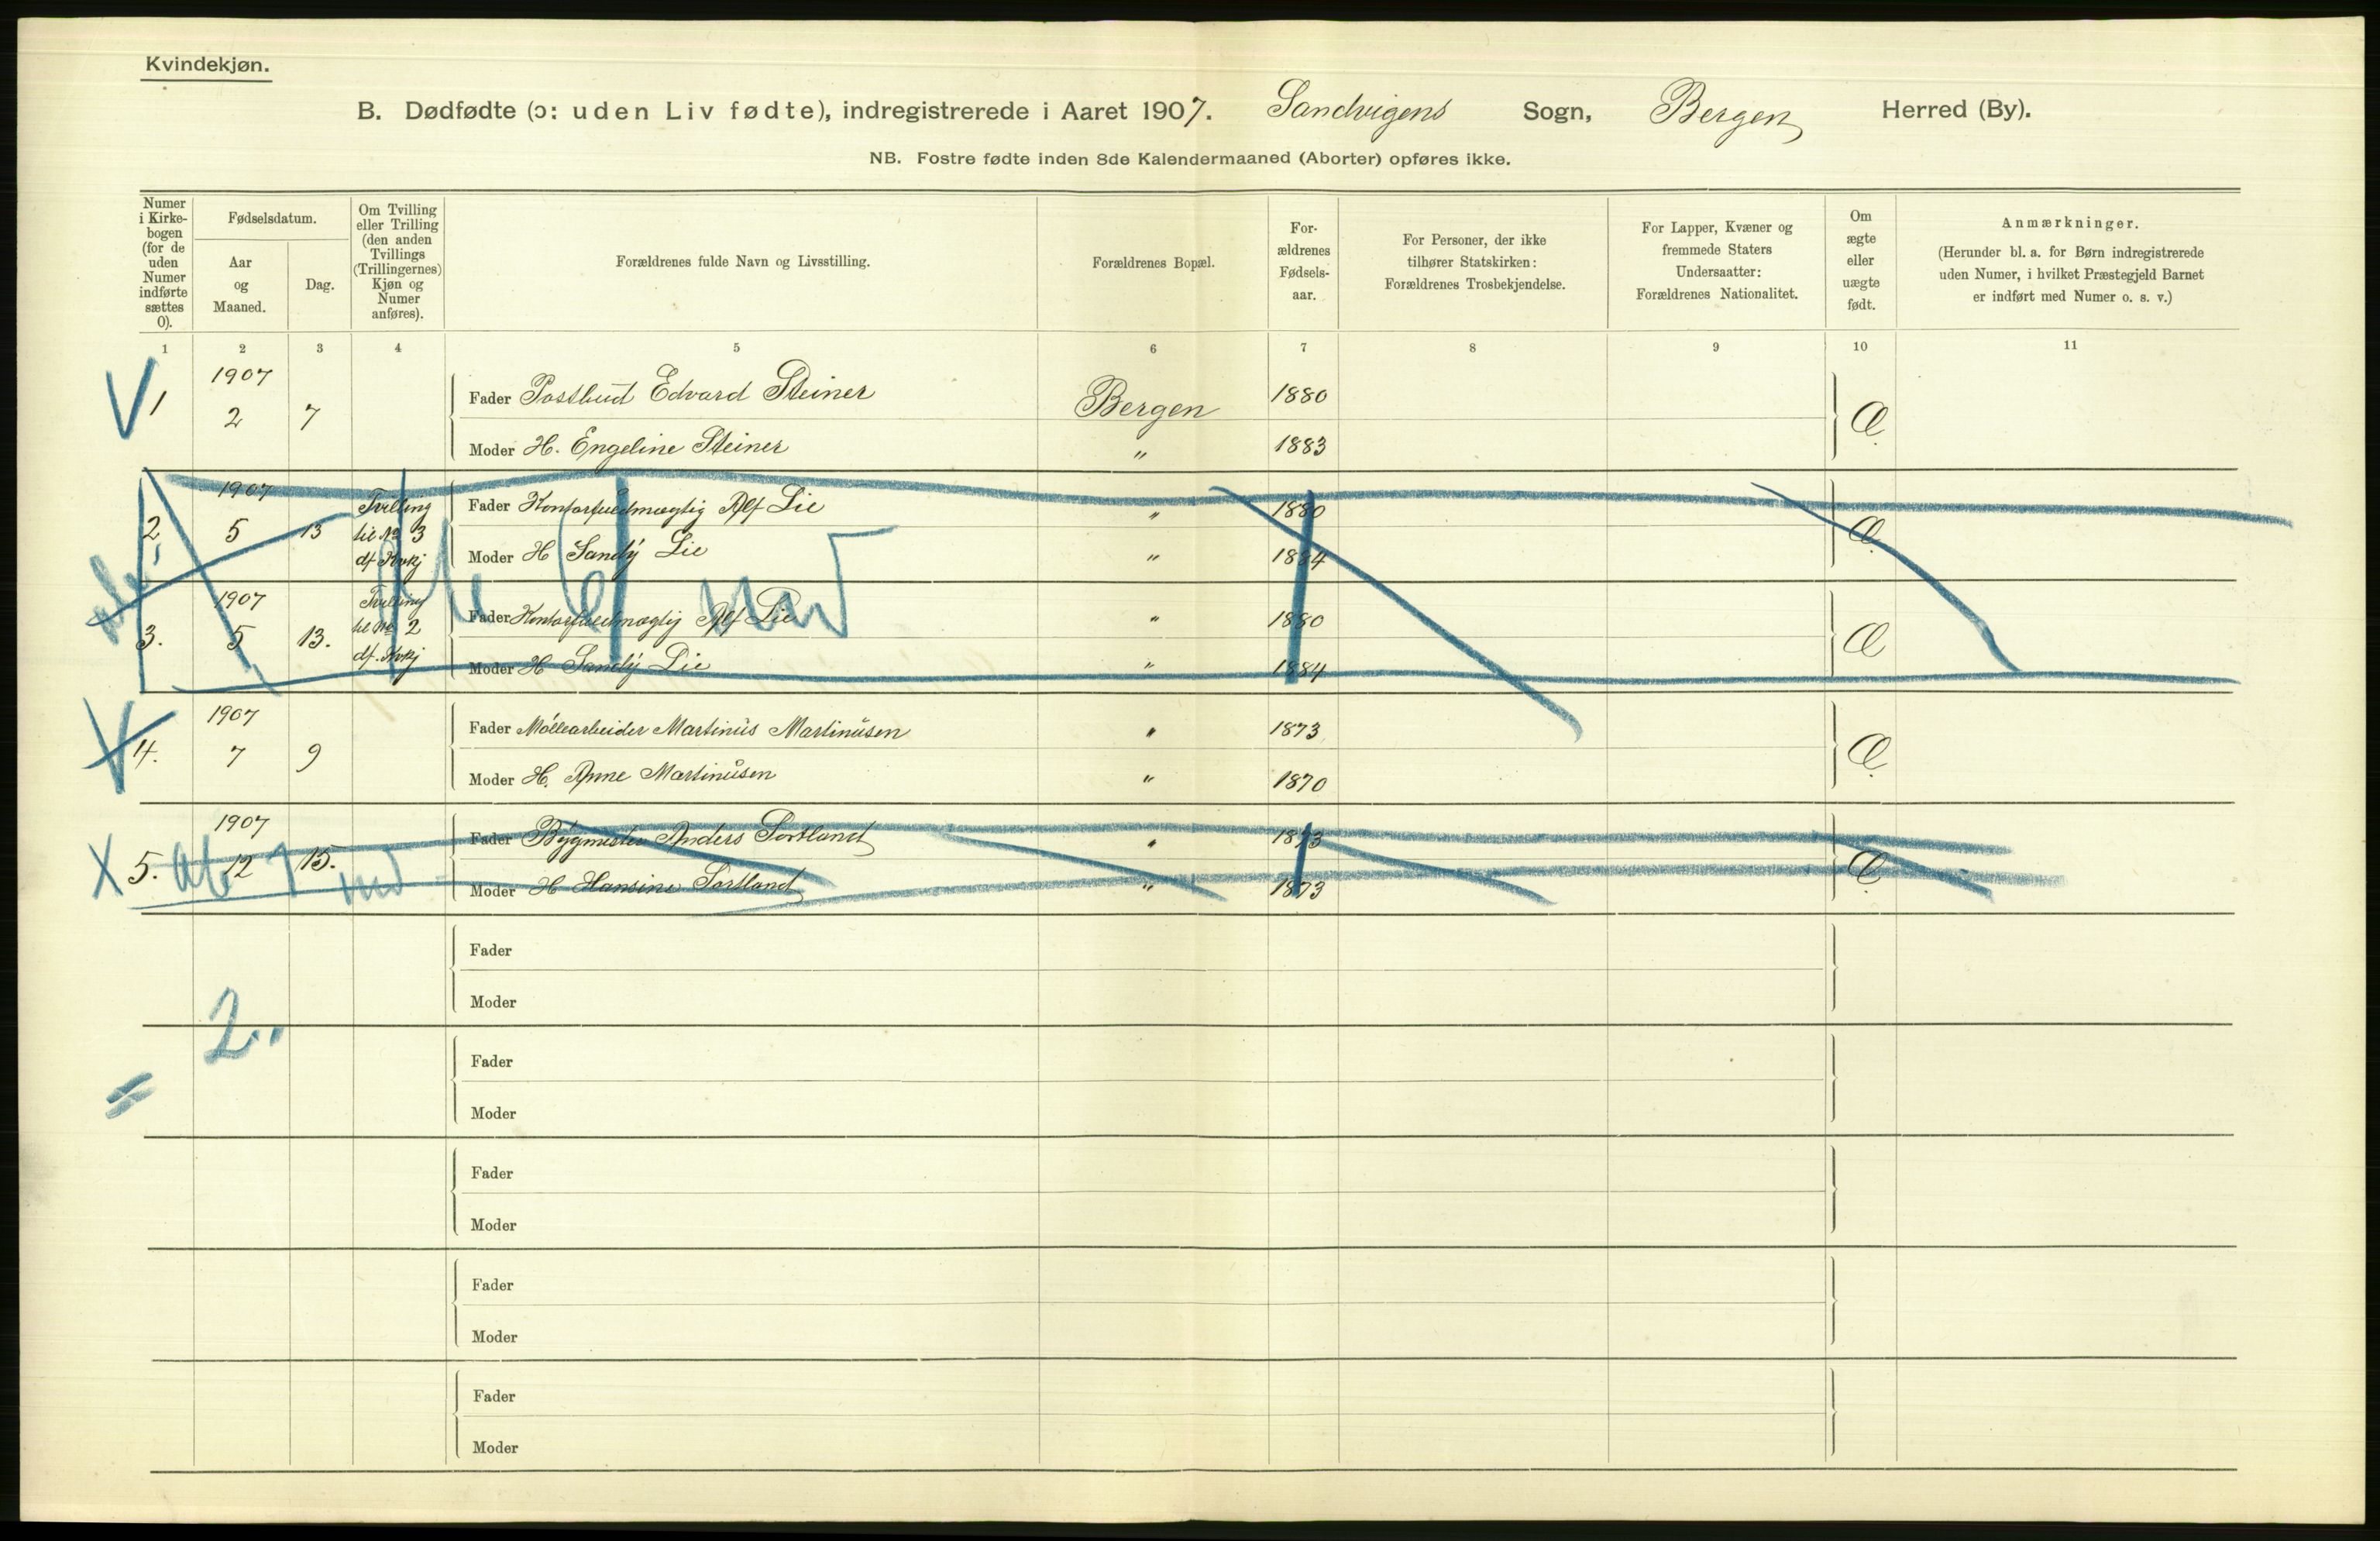 Kvindekjøn.
B. Dødfødte (ɔ: uden Liv fødte), indregistrerede i Aaret 1907. Sandvigens Sogn, Bergen Herred (By).
NB. Fostre fødte inden 8de Kalendermaaned (Aborter) opføres ikke.
Numer i Kirke-bogen (for de uden Numer indførte sættes 0).
Fødselsdatum.
Aar og Maaned.
Dag.
Om Tvilling eller Trilling (den anden Tvillings (Trillingernes) Kjøn og Numer anføres).
Forældrenes fulde Navn og Livsstilling.
Forældrenes Bopæl.
For-ældrenes Fødsels-aar.
For Personer, der ikke tilhører Statskirken: Forældrenes Trosbekjendelse.
For Lapper, Kvæner og fremmede Staters Undersaatter: Forældrenes Nationalitet.
Om ægte eller uægte født.
Anmærkninger.
(Herunder bl. a. for Børn indregistrerede uden Numer, i hvilket Præstegjeld Barnet er indført med Numer o. s. v.)
1 2 3 4 5 6 7 8 9 10 11
1907
1 2 7 Fader Postbud Edvard Steiner Bergen 1880 Æ.
Moder H. Engeline Steiner " 1883
1907 Tvilling
2, 5 13 til No 3 Fader Kontorfuldmægtig Alf Lie " 1880 Æ.
df. Kvkj Moder H Sandy Lie " 1884
1907 Tvilling
3. 5 13. til No 2 Fader Kontorfuldmægtig Alf Lie " 1880 Æ
df. Kvkj Moder H Sandy Lie " 1884
1907
4. 7 9 Fader Möllearbeider Martinus Martinusen " 1873 Æ.
Moder H. Anne Martinusen " 1870
1907
X 5. 12 15. Fader Bygmester Anders Sortland " 1873 Æ.
Moder H Hansine Sortland " 1873
Fader
Moder
2..
Fader
=
Moder
Fader
Moder
Fader
Moder
Fader
Moder